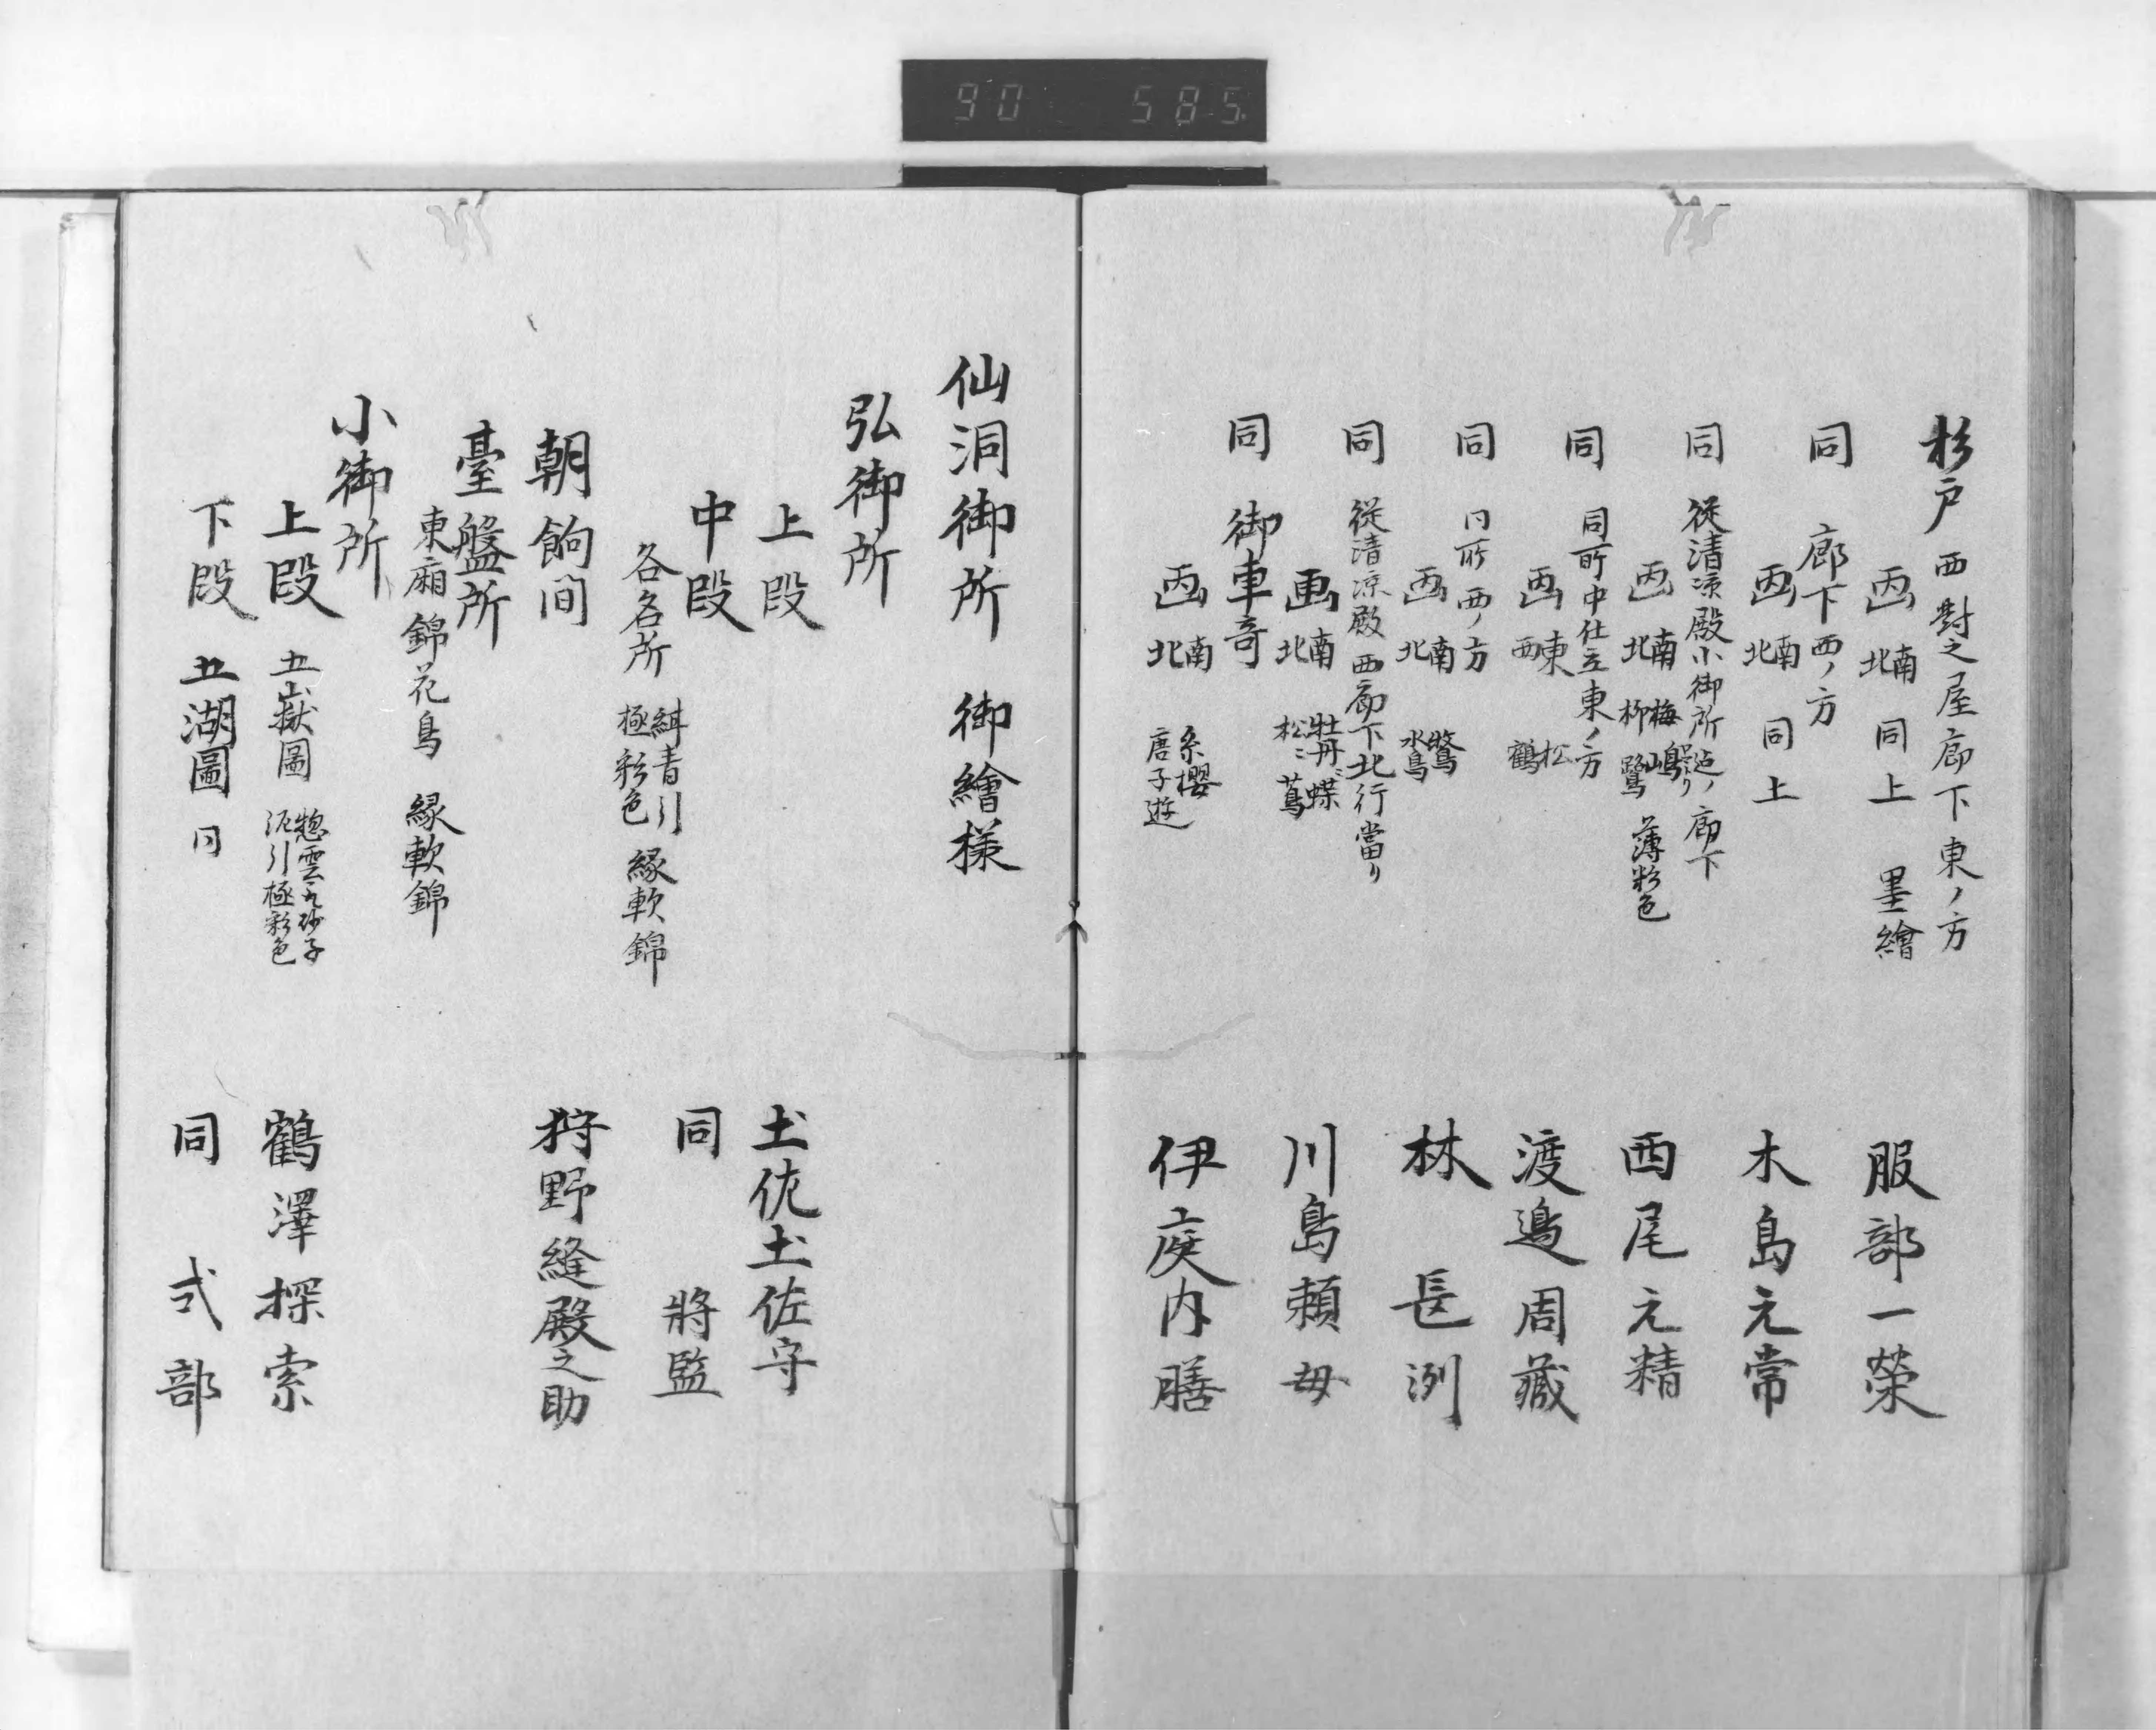 90 585
杉戸 西對之屋廊下東ノ方
画 南北 同上 墨繪 服部一榮
同 廊下西ノ方
画 南北 同上 木島元常
同 從清凉殿小御所迠ノ廊下
画 南北 梅 柳鷺 薄彩色 西尾元精
同 同所中仕立東ノ方
画 東西 松 鶴 渡邉周藏
同 同所西ノ方
画 南北 鷲 水鳥 林 長洌
同 從清凉殿西廊下北行當リ
画 南北 牡丹ニ蝶 松ニ蔦 川島頼母
同 御車寄
画 南北 糸櫻 唐子遊 伊庭内膳
仙洞御所 御繪様
弘御所
上段 土佐土佐守
中段 同 將監
各名所 紺青引 極彩色 縁軟錦
朝餉間 狩野縫殿之助
臺盤所
東廂 錦花鳥 縁軟錦
小御所
上段 五嶽圖 惣雲砂子 泥引極彩色 鶴澤探索
下段 五湖圖 同 同 式部